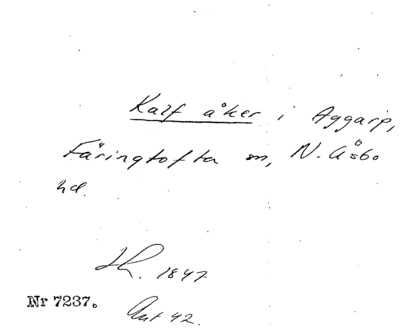 Kalf åker i Aggarp,
Färingtofta sn, N. Åsbo
hd.
1847.
Nr 7237.
42.